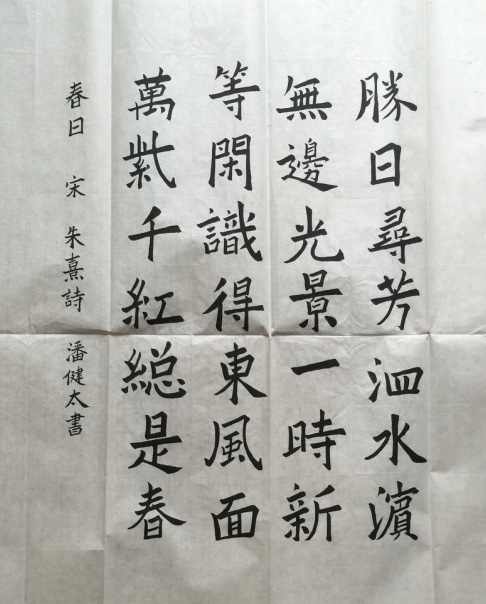 勝日尋芳泗水濱
無邊光景一時新
等閑識得東風面
萬紫千紅総是春
春日 宋 朱熹詩 潘健太書